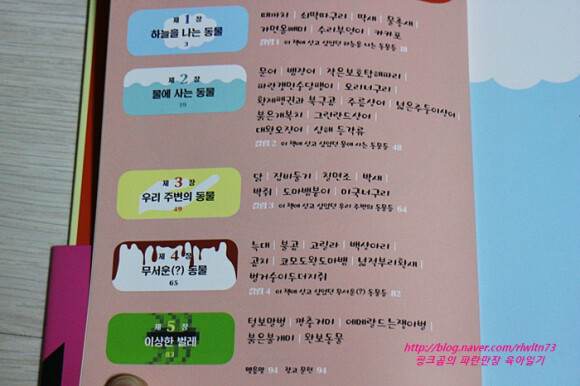 제 1 장
하늘을 나는 동물
3
때까치 | 쇠딱따구리 | 딱새 | 물총새 |
가면올빼미 | 수리부엉이 | 카카포
칼럼 1 이 책에 싣고 싶었던 하늘을 나는 동물들 18
제 2 장
물에 사는 동물
19
문어 | 뱀장어 | 작은보호탑해파리 |
파란갯민숭달팽이 | 오리너구리 |
황제펭귄과 북극곰 | 주름상어 | 넓은주둥이상어 |
붉은개복치 | 그린란드상어 |
대왕오징어 | 심해 등각류
칼럼 2 이 책에 싣고 싶었던 물에 사는 동물들 48
제 3 장
우리 주변의 동물
49
닭 | 집비둘기 | 칠면조 | 박새 |
박쥐 | 도마뱀붙이 | 미국너구리
칼럼 3 이 책에 싣고 싶었던 우리 주변의 동물들 64
제 4 장
무서운(?) 동물
65
늑대 | 불곰 | 고릴라 | 백상아리 |
곰치 | 코모도왕도마뱀 | 넓적부리황새 |
벌거숭이두더지쥐
칼럼 4 이 책에 싣고 싶었던 무서운(?) 동물들 82
제 5 장
이상한 벌레
83
털보말벌 | 깡충거미 | 에메랄드는쟁이벌 |
붉은불개미 | 완보동물
맺음말 94 | 참고 문헌 94
http://blog.naver.com/rlwltn73
핑크곰의 파란만장 육아일기